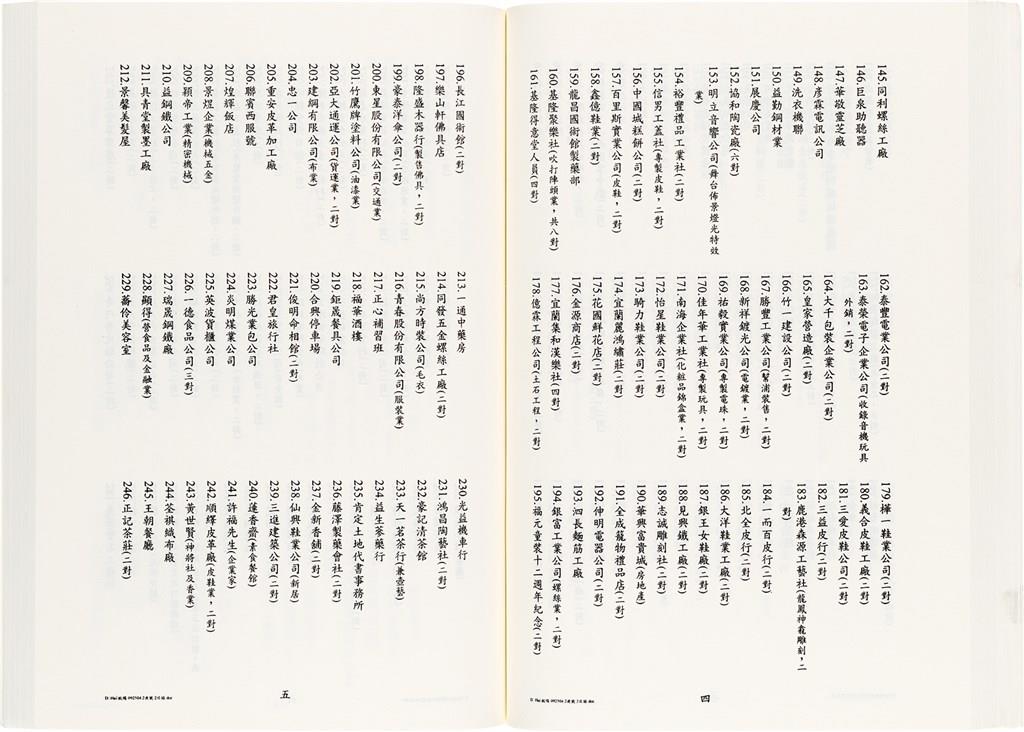 145.同利螺絲工廠
146.巨泉助聽器
147.華敬靈芝廠
148.彥霖電訊公司
149.洗衣機聯
150.益勤鋼材業
151.展慶公司
152.協和陶瓷廠(六對)
153.明立音響公司(舞台佈景燈光特效
業)
154.裕豐禮品工業社(二對)
155.信男工蓋社(專製皮鞋，二對)
156.中國城糕餅公司(二對)
157.百里斯實業公司(皮鞋，二對)
158.鑫億鞋業(二對)
159.龍昌國術館製藥部
160.基隆聚樂社(吹打陣頭業，共八對)
161.基隆得意堂人員(四對)
162.泰豐電業公司(二對)
163.泰榮電子企業公司(收錄音機玩具
外銷，二對)
164.大千包裝企業公司(二對)
165.皇家營造廠(二對)
166.竹一建設公司(二對)
167.勝豐工業公司(幫浦裝售，二對)
168.新祥鍍光公司(電鍍業，二對)
169.祐毅實業公司(專製電珠，二對)
170.佳年華工業社(專製玩具，二對)
171.南海企業社(化粧品錦盒業，二對)
172.怡星鞋業公司(二對)
173.騎力鞋業公司(二對)
174.宜蘭麗鴻繡莊(二對)
175.花國鮮花店(二對)
176.金源商店(二對)
177.宜蘭集和漢樂社(四對)
178.億霖工程公司(土石工程，二對)
179.樺一鞋業公司(二對)
180.義合皮鞋工廠(二對)
181.三愛皮鞋公司(二對)
182.三益皮行(二對)
183.鹿港森源工藝社(龍鳳神龕雕刻，二
對)
184.一而百皮行(二對)
185.北全皮行(二對)
186.大洋鞋業工廠(二對)
187.銀王女鞋廠(二對)
188.見興鐵工廠(二對)
189.志誠雕刻社(二對)
190.華興富貴城(房地產)
191.全成寵物禮品店(二對)
192.仲明電器公司(二對)
193.泗長麵筋工廠
194.銀富工業公司(螺絲業，二對)
195.福元童裝十二週年紀念(二對)
四
196.長江國術館(二對)
197.樂山軒佛具店
198.隆盛木器行(製售佛具，二對)
199.豪泰洋傘公司(二對)
200.東星股份有限公司(交通業)
201.竹鷹牌塗料公司(油漆業)
202.亞大通運公司(貨運業，二對)
203.建綱有限公司(布業)
204.忠一公司
205.重安皮革加工廠
206.聯賓西服號
207.煌輝飯店
208.景煜企業(機械五金)
209.穎帝工業(精密機械)
210.益鋼鐵公司
211.具青堂製墨工廠
212.景馨美髮屋
213.一通中藥房
214.同發五金螺絲工廠(二對)
215.尚方時裝公司(毛衣)
216.青春股份有限公司(服裝業)
217.正心補習班
218.福華酒樓
219.鉅晟餐具公司
220.合興停車場
221.俊明命相館(二對)
222.君皇旅行社
223.勝光業包公司
224.炎明煤業公司
225.英波貨櫃公司
226.一德食品公司(三對)
227.瑞晟鋼鐵廠
228.顯得(營食品及金融業)
229.蕎伶美容室
230.光益機車行
231.鴻昌陶藝社(二對)
232.豪記清茶館
233.天一茗茶行(兼壺藝)
234.益生蔘藥行
235.肯定土地代書事務所
236.藤澤製藥會社(二對)
237.金新香舖(二對)
238.仙興鞋業公司(新居)
239.三進建築公司(二對)
240.蓮香齋(素食餐館)
241.許福先生(企業家)
242.順繹皮革廠(皮鞋業，二對)
243.黃世賢(神將社及香業)
244.荃祺織布廠
245.王朝餐廳
246.正記茶莊(二對)
五